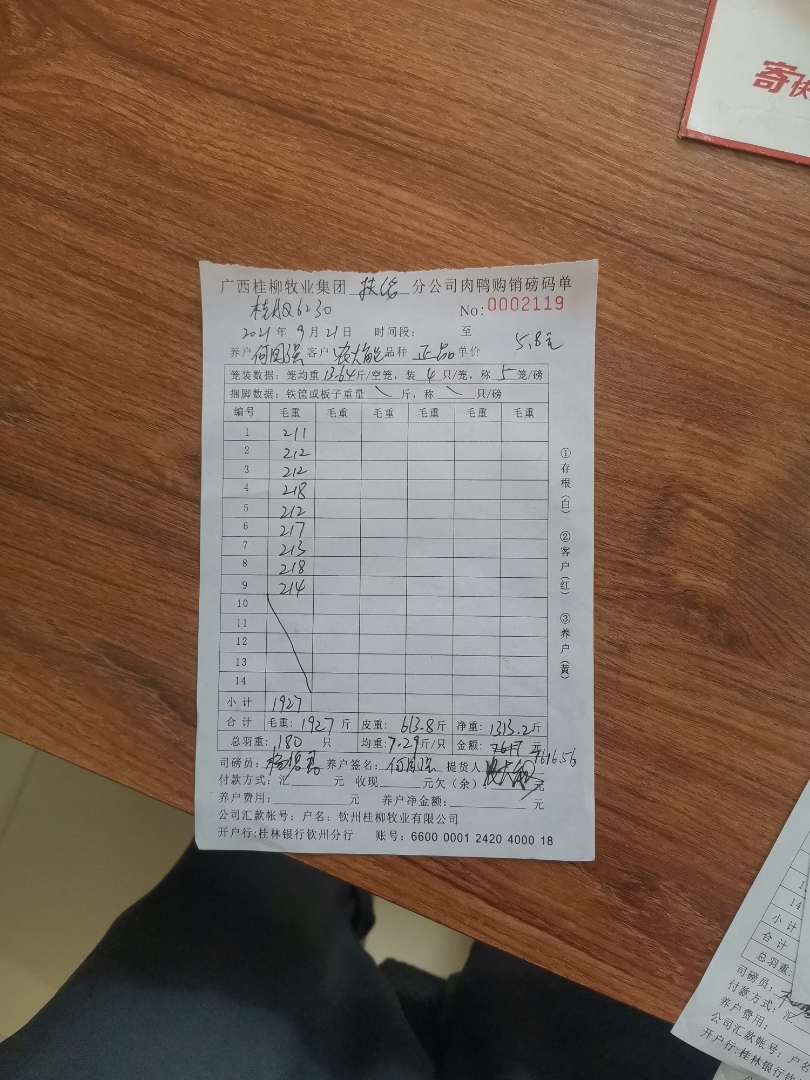 寄快
广西桂柳牧业集团 扶绥 分公司肉鸭购销磅码单
桂AQ6230
No:0002119
2021年9月21日 时间段: 至
养户 何国强 客户 品种 正品 单价 5.8元
笼装数据: 笼均重13.64斤/空笼, 装4只/笼, 称5笼/磅
捆脚数据: 铁筐或板子重量 \ 斤, 称 \ 只/磅
编号 毛重 毛重 毛重 毛重 毛重 毛重
1 211
2 212
3 212
4 218
5 212
6 217
7 213
8 218
9 214
10
11
12
13
14
小计 1927
合计 毛重: 1927斤 皮重: 613.8斤 净重: 1313.2斤
总羽重: 180 只 均重: 7.29斤/只 金额: 7617 元
7616.56
司磅员: 养户签名: 何国强 提货人
付款方式: 汇 元 收现 元欠(余) 元
养户费用: 元 养户净金额: 元
公司汇款帐号: 户名: 钦州桂柳牧业有限公司
开户行:桂林银行钦州分行 账号: 6600 0001 2420 4000 18
①存根(白) ②客户(红) ③养户(黄)
14
小计
合计
总羽重:
司磅员:
付款方式: 汇
养户费用:
公司汇款帐号: 户名
开户行:桂林银行